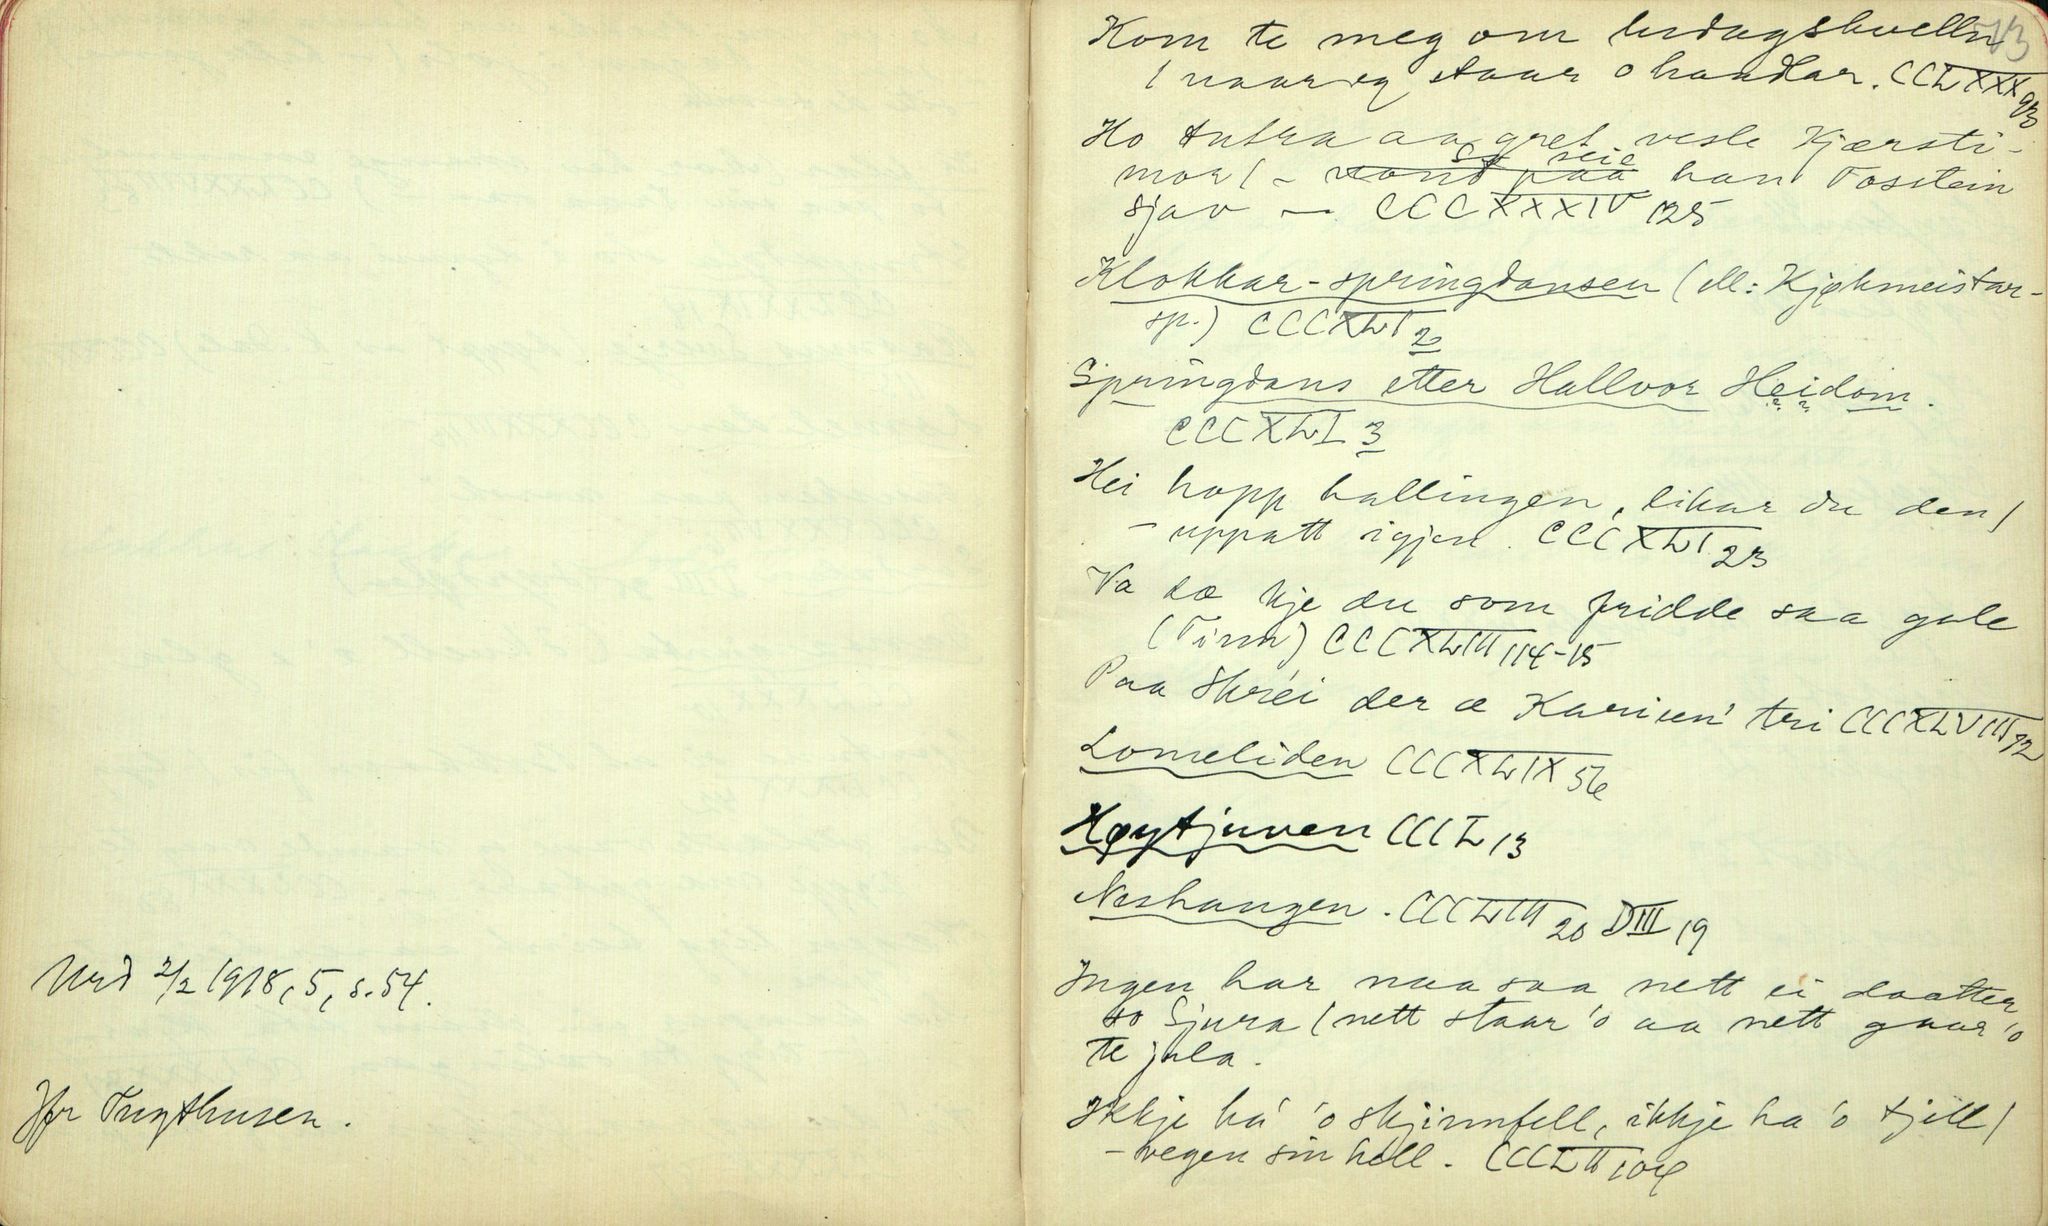 Urd 2/2 1918, 5, s. 54.
Jfr Trygthusen.
73
Kom te meg om lurdagskvelln
/ naar eg staar o handlar. CCLXXX 93
Ho sutra aa gret vesle Kjærsti-
mor / - so seie han Tostein
sjav — CCCXXXIV 125
Klokkar-springdansen (ell: Kjøkmeistar-
sp.) CCCXLI 2
Springdans etter Hallvor Heidom.
CCCXLI 3
Hei hopp hallingen, likar du den /
- uppatt igjen. CCCXLI 23
Va dæ kje du som fridde saa gale
(Tinn) CCCXLIII 114-15
Paa Skréi der æ Karien' tri CCCXLVIII 92
Lomeliden CCCXLIX 56
Høytjuven CCCL 13
Neshangen. CCCLIII 20 DIII 19
Ingen har naa saa nett ei daatter
so Sjura / nett staar 'o aa nett gaar 'o
te jula.
Ikkje ha' 'o skjinnfell, ikkje ha 'o tjell /
- vegen sin hell. CCCLII 104